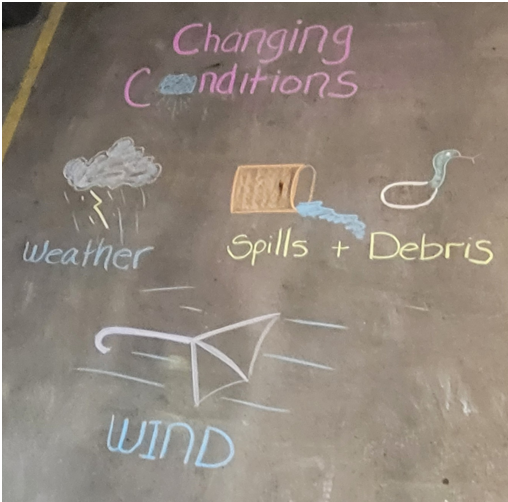 Changing
Conditions
Weather
Spills + Debris
WIND